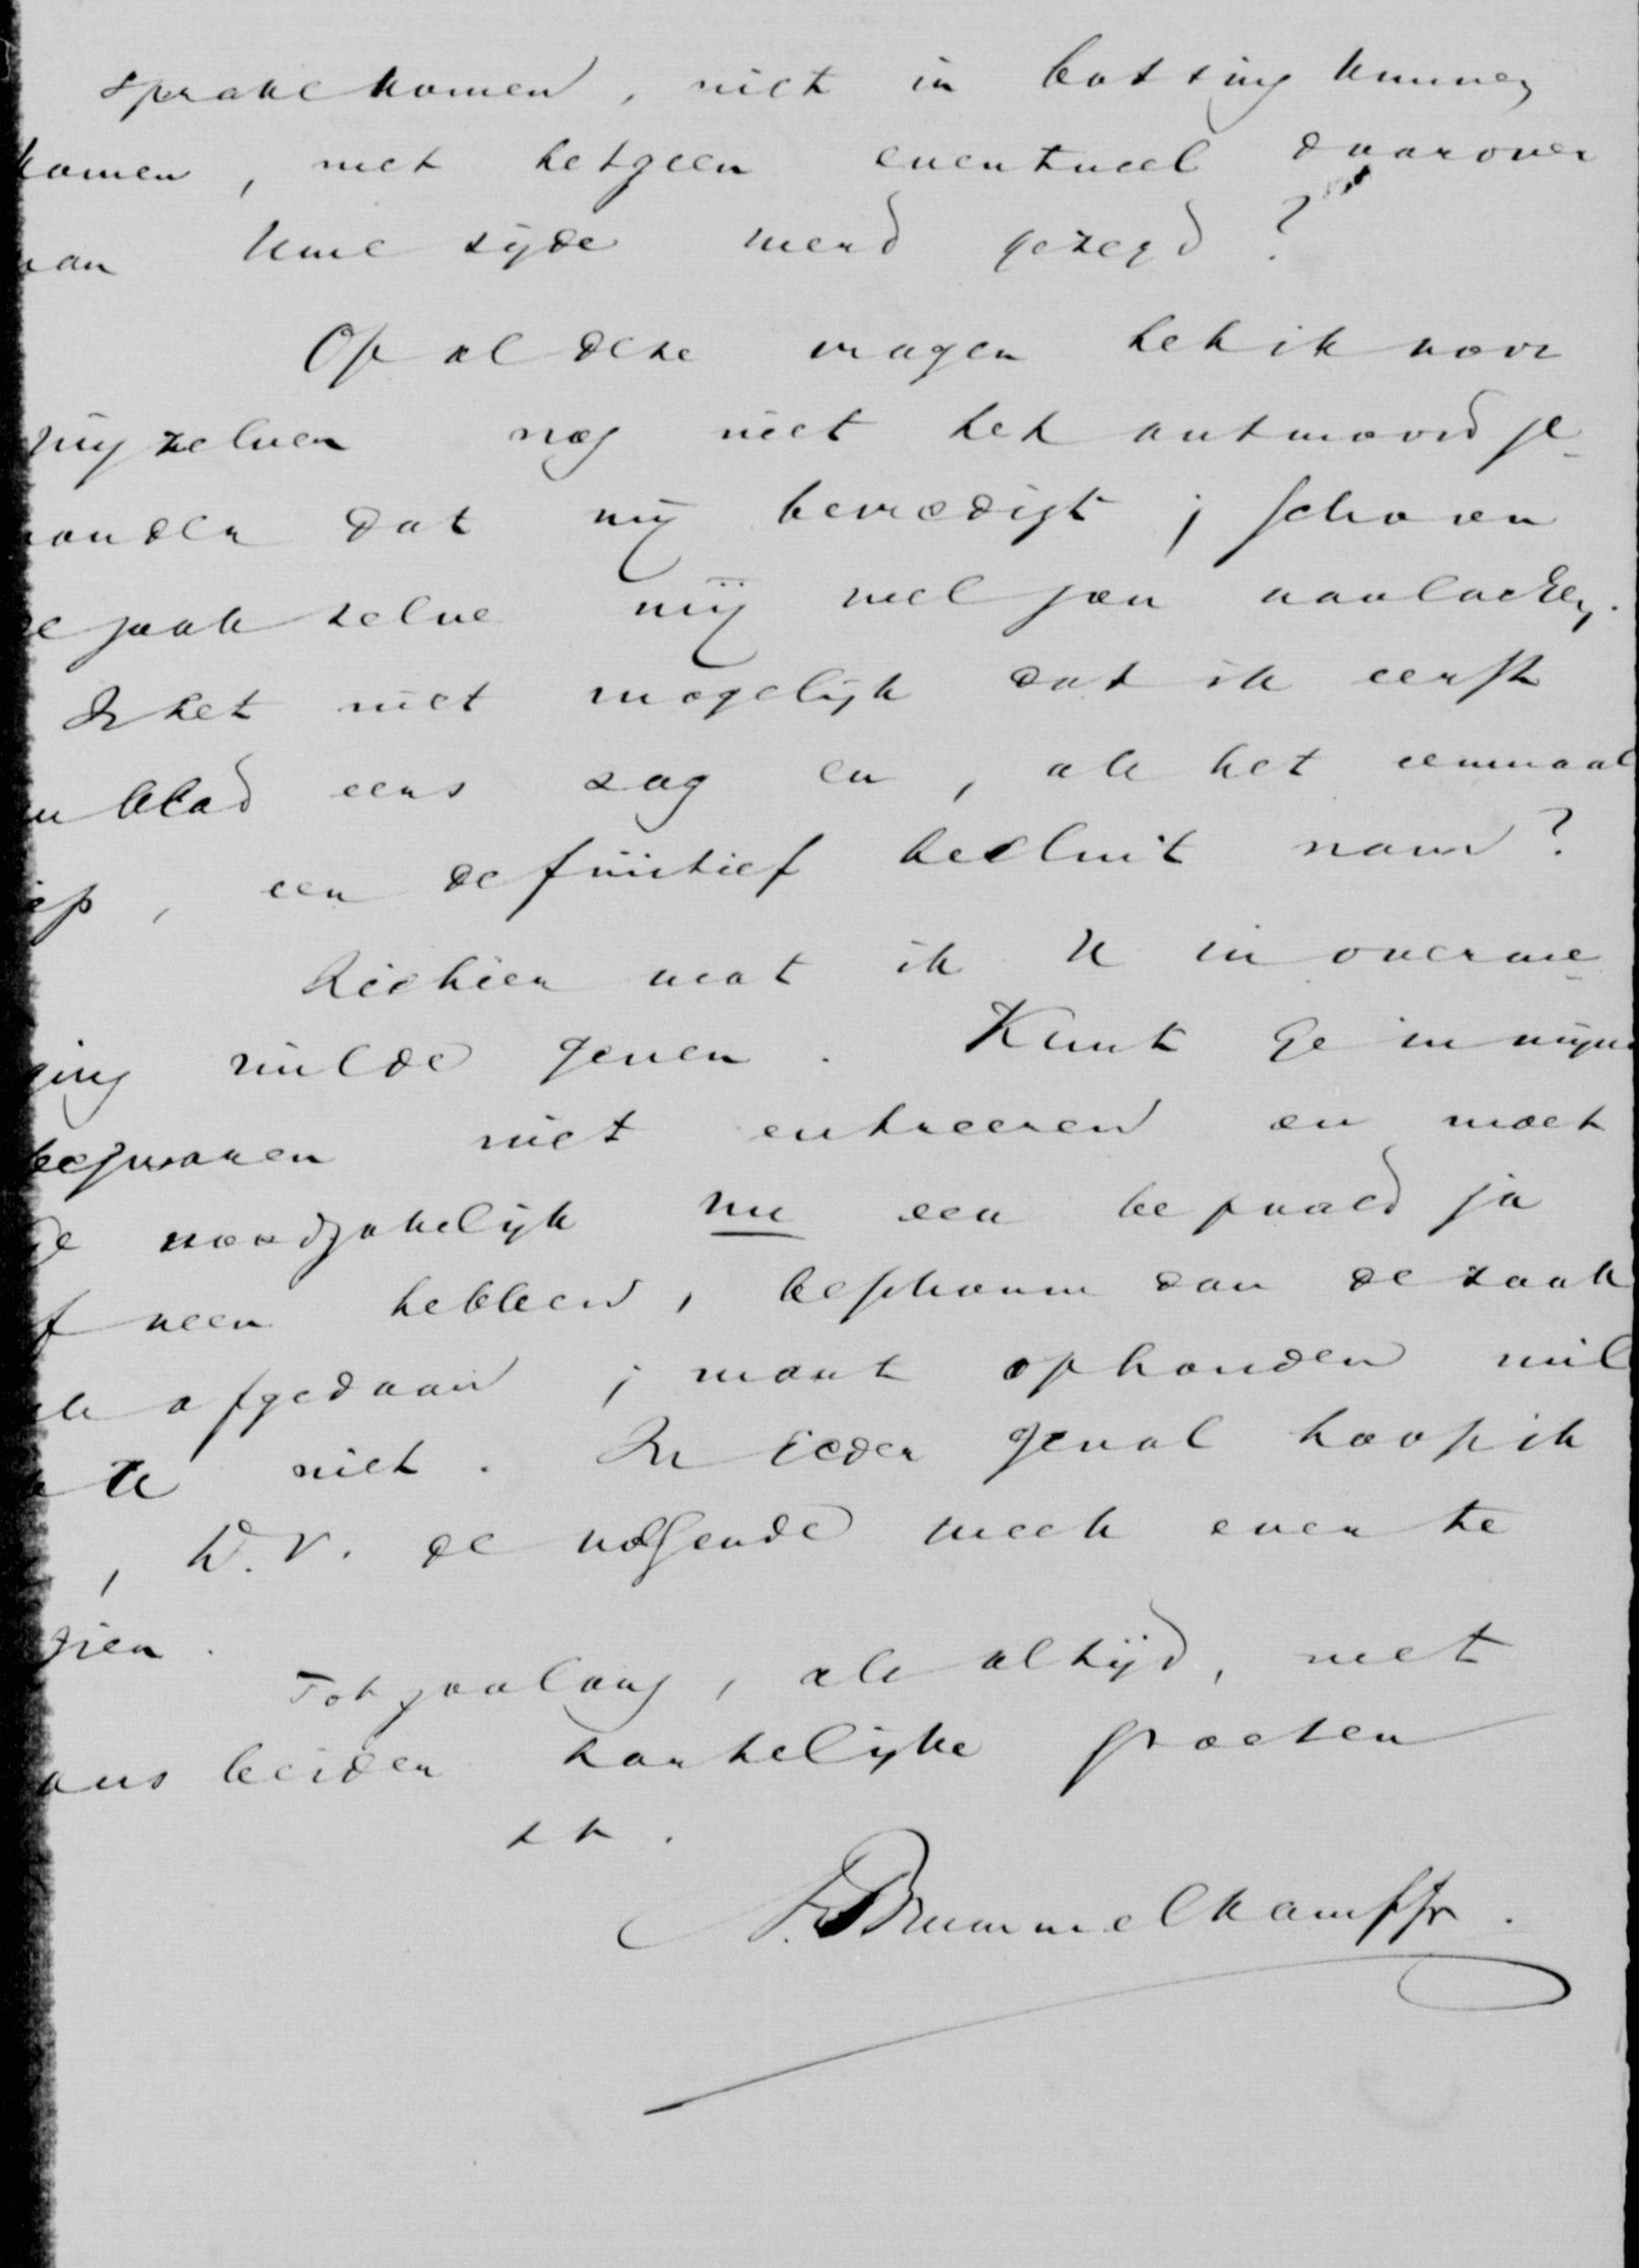 sprake komen, niet in botsing kunnen
komen, met hetgeen eventueel daarover
van Uwe zijde werd gezegd?
Op al deze vragen heb ik voor
mijzelven nog niet het antwoord ge-
vonden dat mij bevredigt; schoon
de zaak zelve mij wel zou aanlachen.
Is het niet mogelijk dat ik eerst
uw blad eens zag en, als het eenmaal
liep, een definitief besluit nam?
Ziehier wat ik U in overwe-
ging wilde geven. Kunt ge in mijne
bezwaren niet entreeren en moet
ge noodzakelijk nu een bepaald ja
of neen hebben, beschouw dan de zaak
als afgedaan; want ophouden wil
ik U niet. In ieder geval hoop ik
U, D.V. de volgende week even te
zien.
Tot zoolang, als altijd, met
ons beider hartelijke groeten
tt.
A. Brummelkamp Jr.